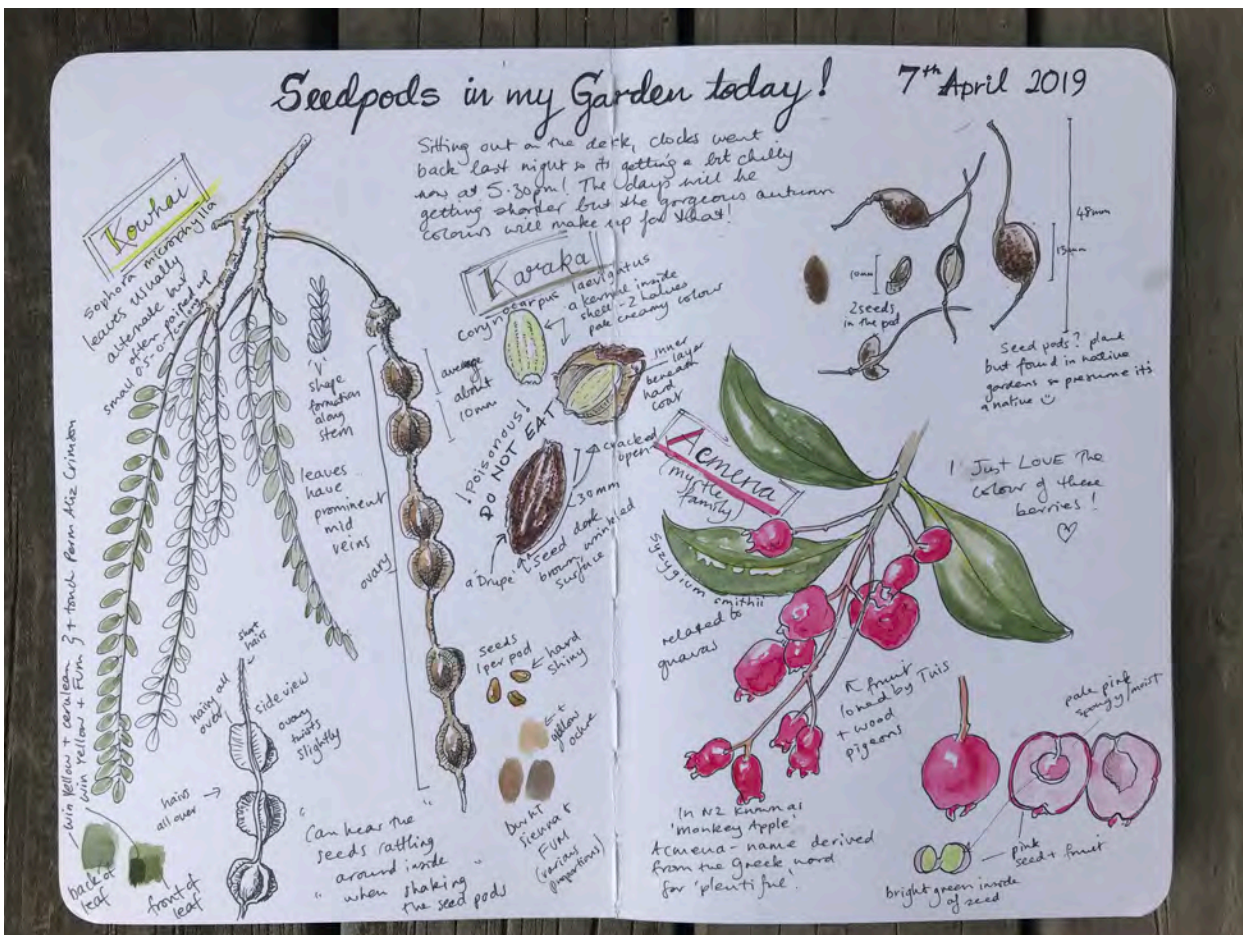 Seedpods in my Garden today!
7th April 2019
Sitting out on the deck, clocks went
back last night so its getting a bit chilly
now at 5.30pm! The days will be
getting shorter but the gorgeous autumn
colours will make up for that!
Kowhai
sophora microphylla
leaves usually
alternate but
often paired up
small 0.5-0.7cm long
'V'
shape
formation
along
stem
leaves
have
prominent
mid
veins
average
about
10mm
ovary
short
hairs
hairy all
over
side view
ovary
twists
slightly
hairs
all over
Win Yellow + cerulean
Win Yellow + FUM } + touch Perm Aliz Crimson
back of
leaf
front of
leaf
"Can hear the "
seeds rattling
around inside
" when shaking "
the seed pods
seeds
1 per pod
hard
shiny
+
yellow
ochre
burnt
sienna &
FUM
(various
proportions)
Karaka
corynocarpus laevigatus
a kernel inside
shell - 2 halves
pale creamy colour
inner
layer
beneath
hard
coat
!Poisonous!
DO NOT EAT
cracked
open
30mm
a 'Drupe'
seed dark
brown, wrinkled
surface
48mm
15mm
10mm
2 seeds
in the pod
Seed pods? plant
but found in native
gardens so presume it's
a native
Acmena
(myrtle
family)
Syzygium smithii
related to
guavas
I Just LOVE the
colour of these
berries!
fruit
loved by Tuis
+ wood
pigeons
In NZ known as
'monkey Apple'
Acmena - name derived
from the Greek word
for 'plentiful'.
pale pink
spongy/moist
pink
seed + fruit
bright green inside
of seed